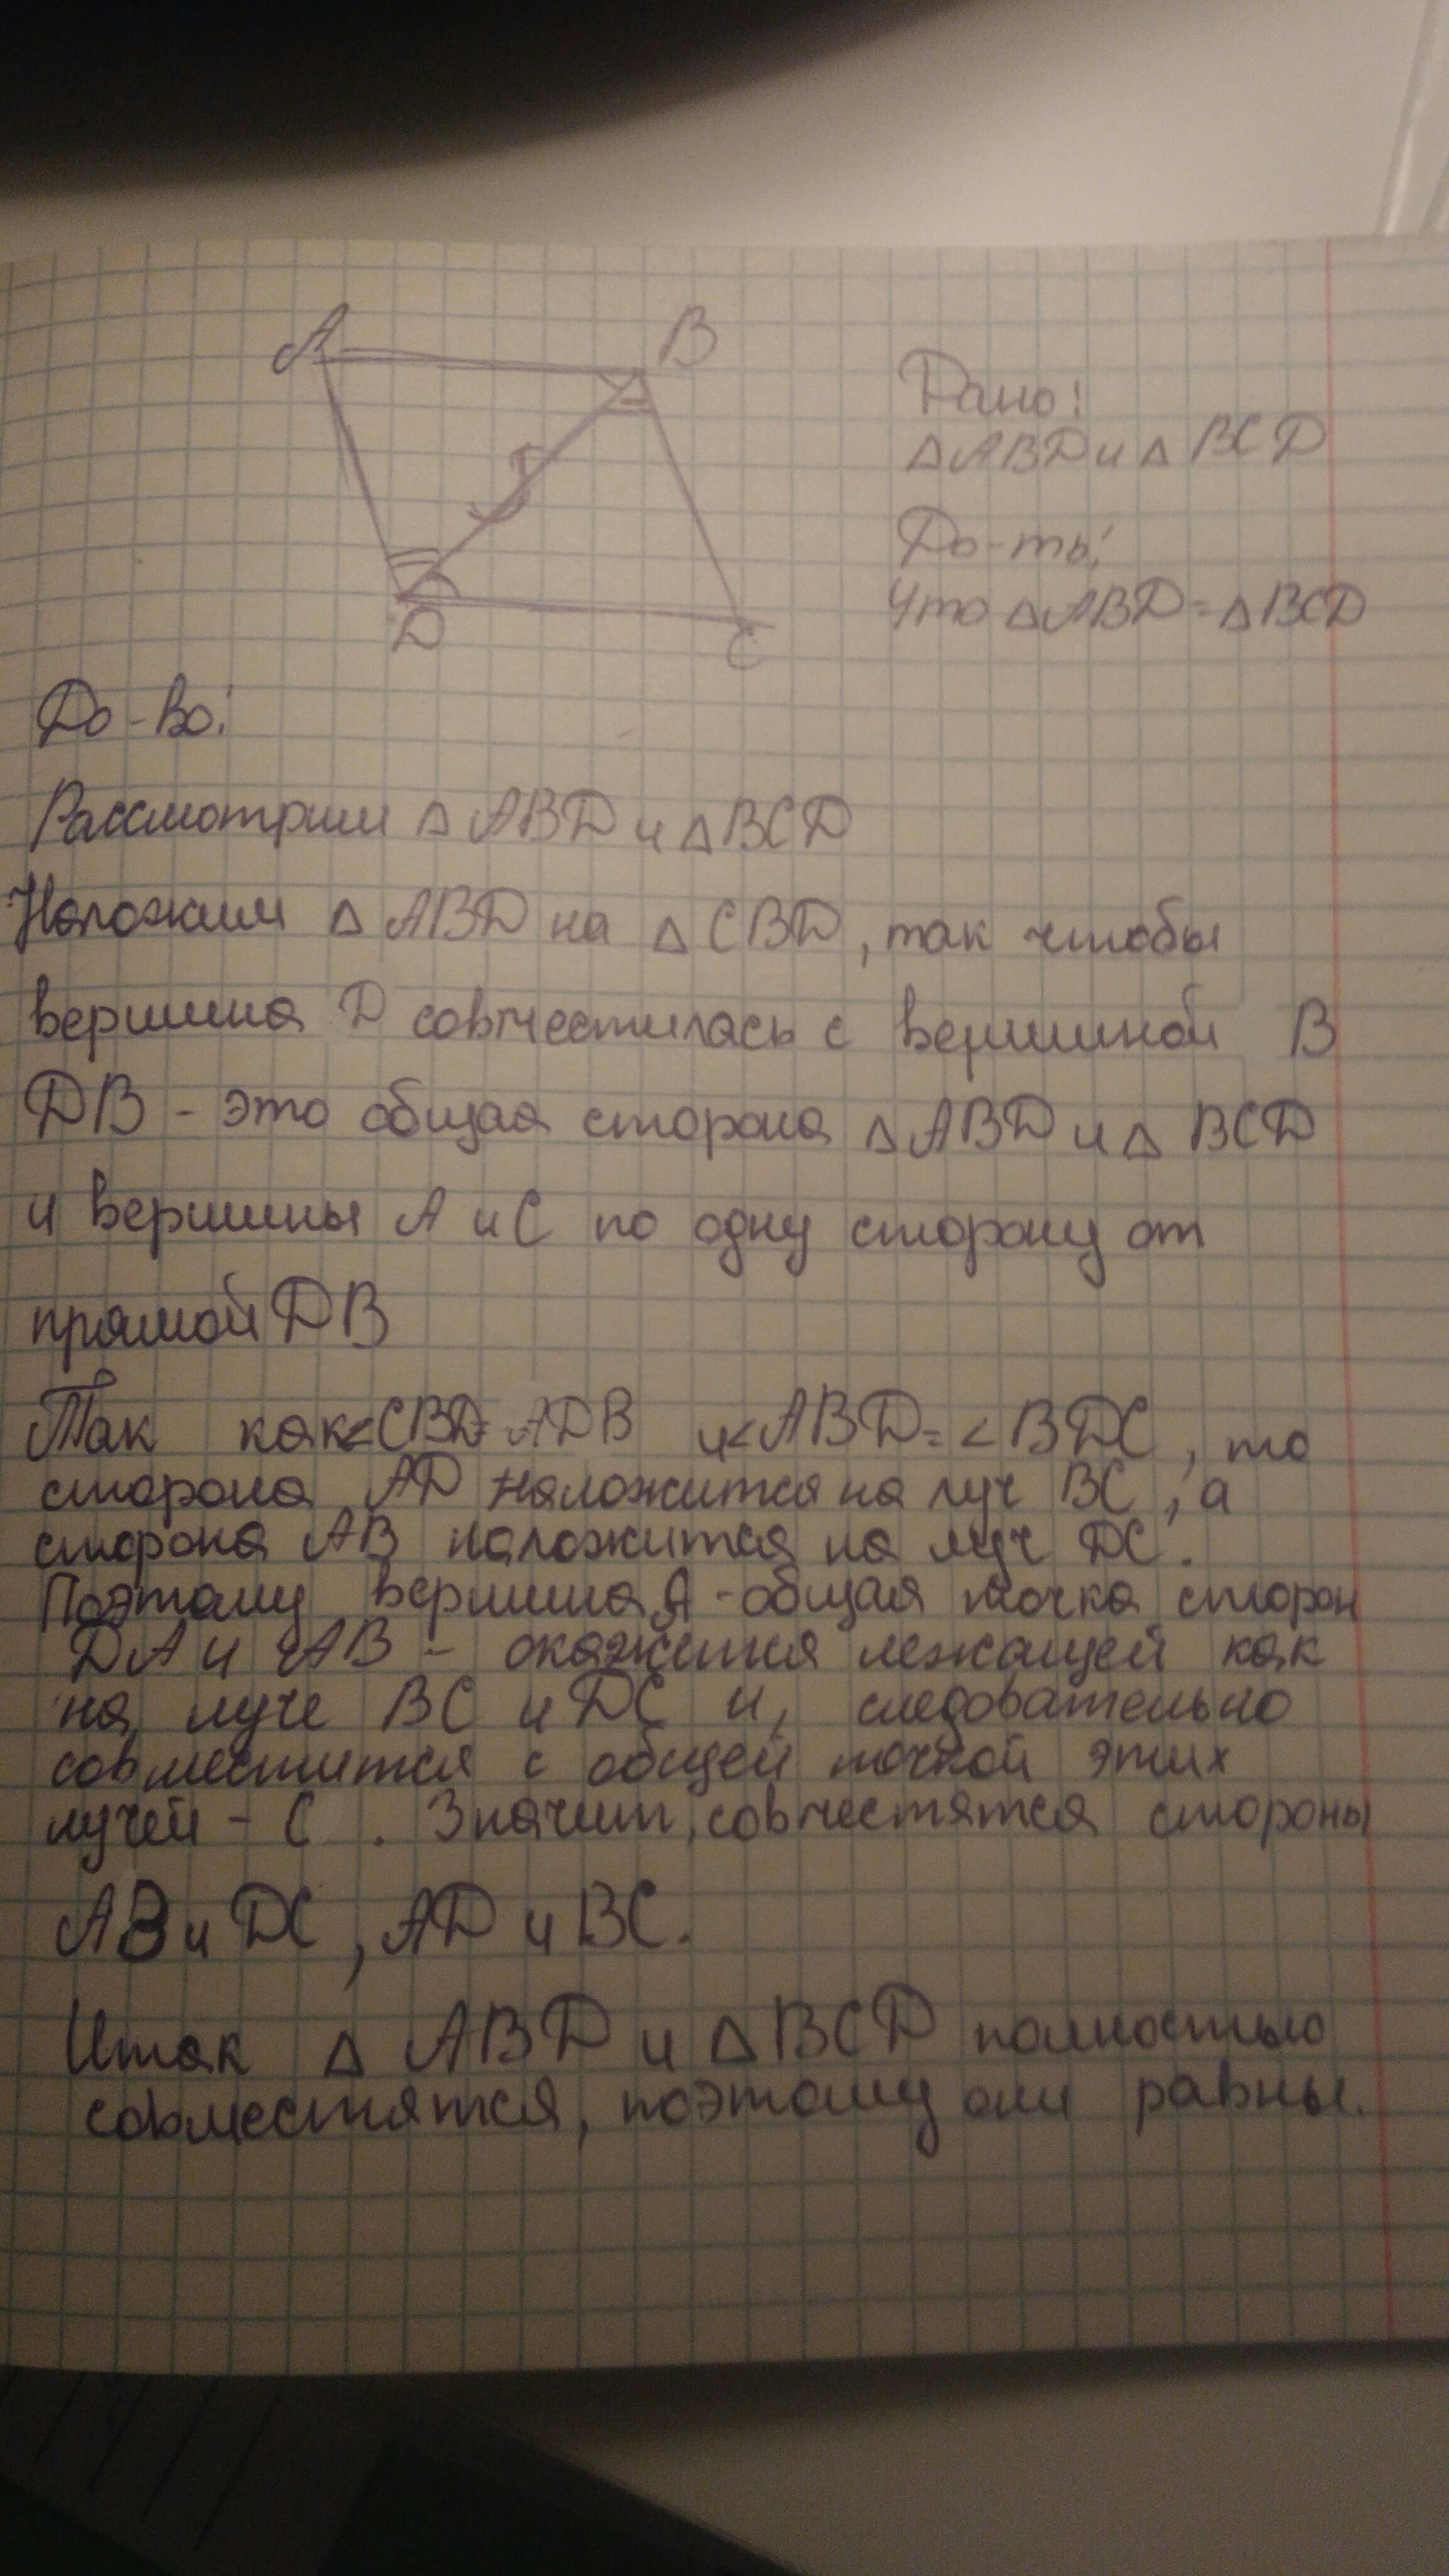 A
B
Дано:
△ABD и △BCD
До-ть:
Что △ABD = △BCD
D
C
До-во:
Рассмотрим △ABD и △BCD
Наложим △ ABD на △ CBD, так чтобы
вершина D совместилась с вершиной B
DB - это общая сторона △ABD и △ BCD
и вершины A и C по одну сторону от
прямой DB
Так как <CBD = ADB и <ABD = <BDC, то
сторона AD наложится на луч BC, а
сторона AB наложится на луч DC.
Поэтому вершина A - общая точка сторон
DA и AB - окажется лежащей как
на луче BC и DC и, следовательно
совместится с общей точкой этих
лучей - C. Значит, совместятся стороны
AB и DC, AD и BC.
Итак △ ABD и △BCD полностью
совместятся, поэтому они равны.